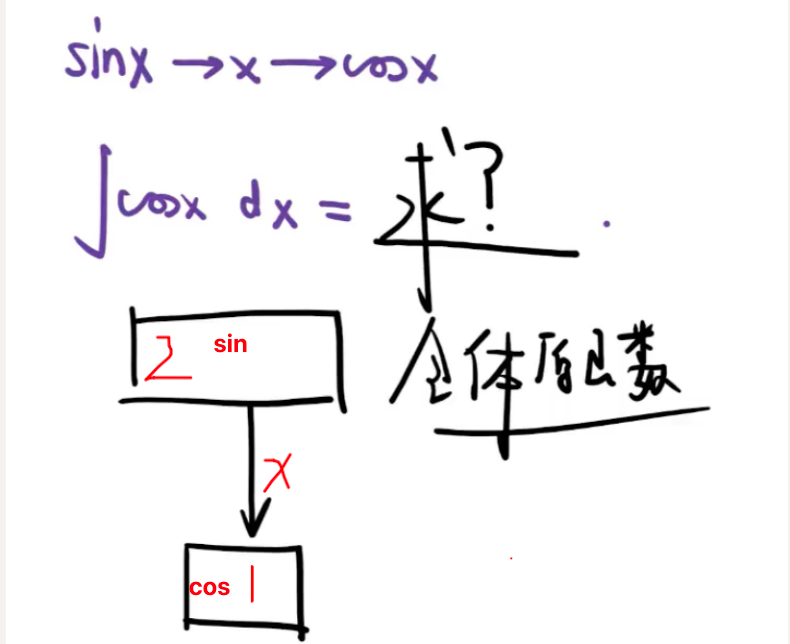 sinx → x → cosx
∫cosx dx = 求?
全体原函数
2 sin
x
cos 1